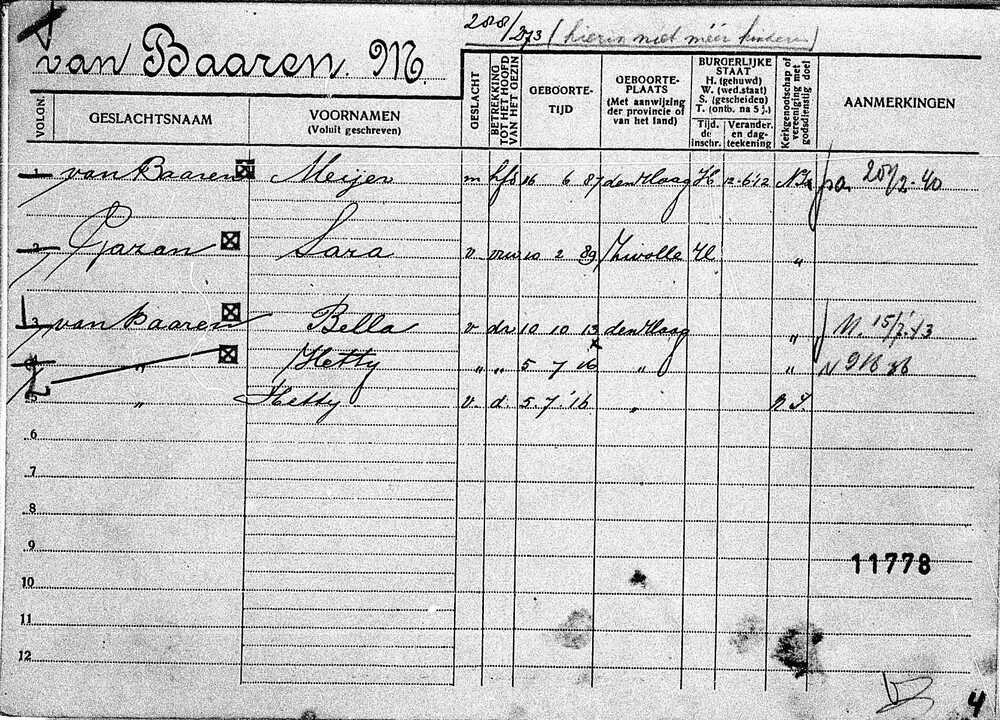 288/273 (hierin niet méér kinderen)
van Baaren. M.
VOLGN. GESLACHTSNAAM VOORNAMEN (Voluit geschreven) GESLACHT BETREKKING TOT HET HOOFD VAN HET GEZIN GEBOORTE-TIJD GEBOORTE-PLAATS (Met aanwijzing der provincie of van het land) BURGERLIJKE STAAT H. (gehuwd) W. (wed.staat) S. (gescheiden) T. (ontb. na 5 j.) Tijd. de inschr. Verander. en dag-teekening Kerkgenootschap of vereeniging met godsdienstig doel AANMERKINGEN
1 van Baaren Meijer m hfd 16 6 87 den Haag H 12-6-12 N.I. 28/2-40
2 Gazan Sara v vrw 10 2 89 Zwolle H "
3 van Baaren Bella v dr 10 10 13 den Haag "
4 " Hetty " " 5 7 16 " "
5 " Hetty v d. 5. 7. '16 "
6
7
8
9
10
11
12
11778
4